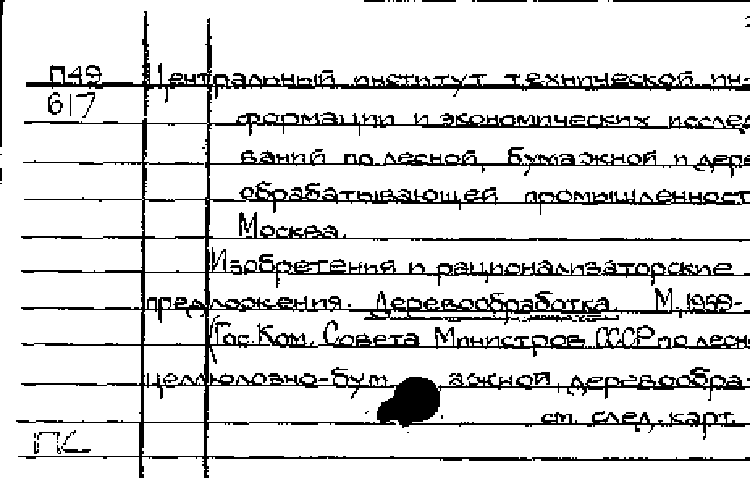 П49 Центральный институт технической ин-
617
формации и экономических исслед
ваний по лесной, бумажной и дере
обрабатывающей промышленност
Москва.
Изобретения и рационализаторские
предложения. Деревообработка. М., 1959-
(Гос. Ком. Совета Министров СССР по лесн.
целлюлозно-бум ажной, деревообра-
см. след. карт.
ПК